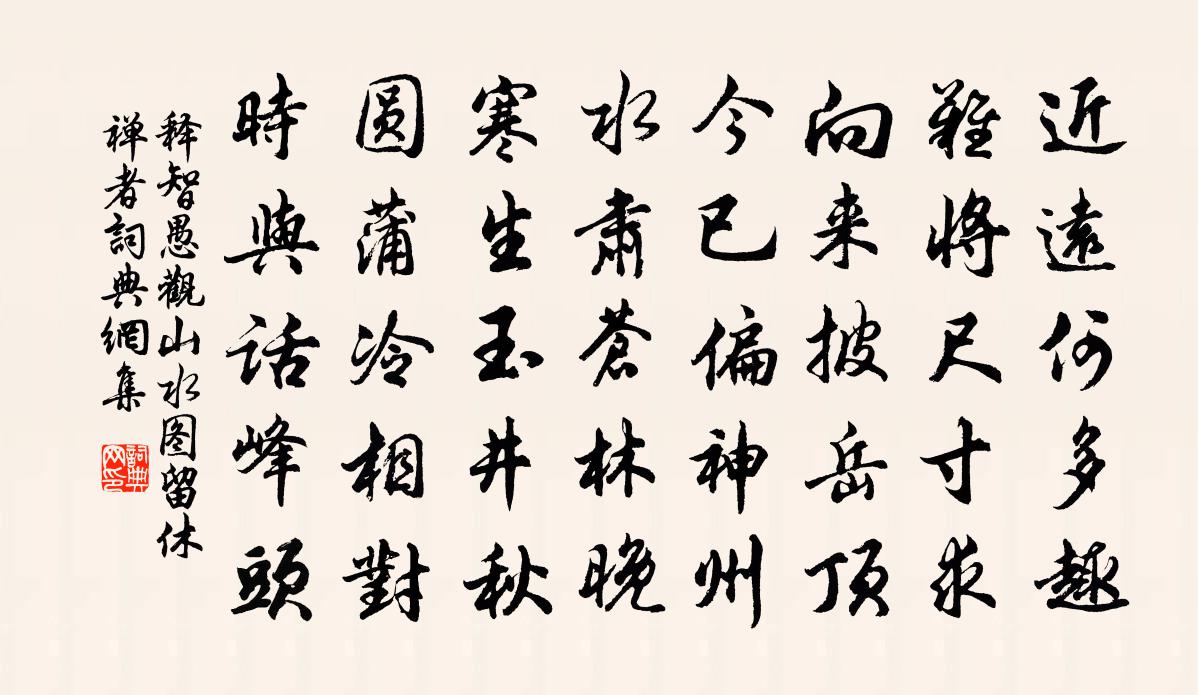 近遠何多趣
難將尺寸求
向来披岳頂
今已偏神州
水肅蒼林晚
寒生玉井秋
圆蒲冷相對
時與話峰頭
释智愚觀山水图留休
禅者詞典網集
詞典网印